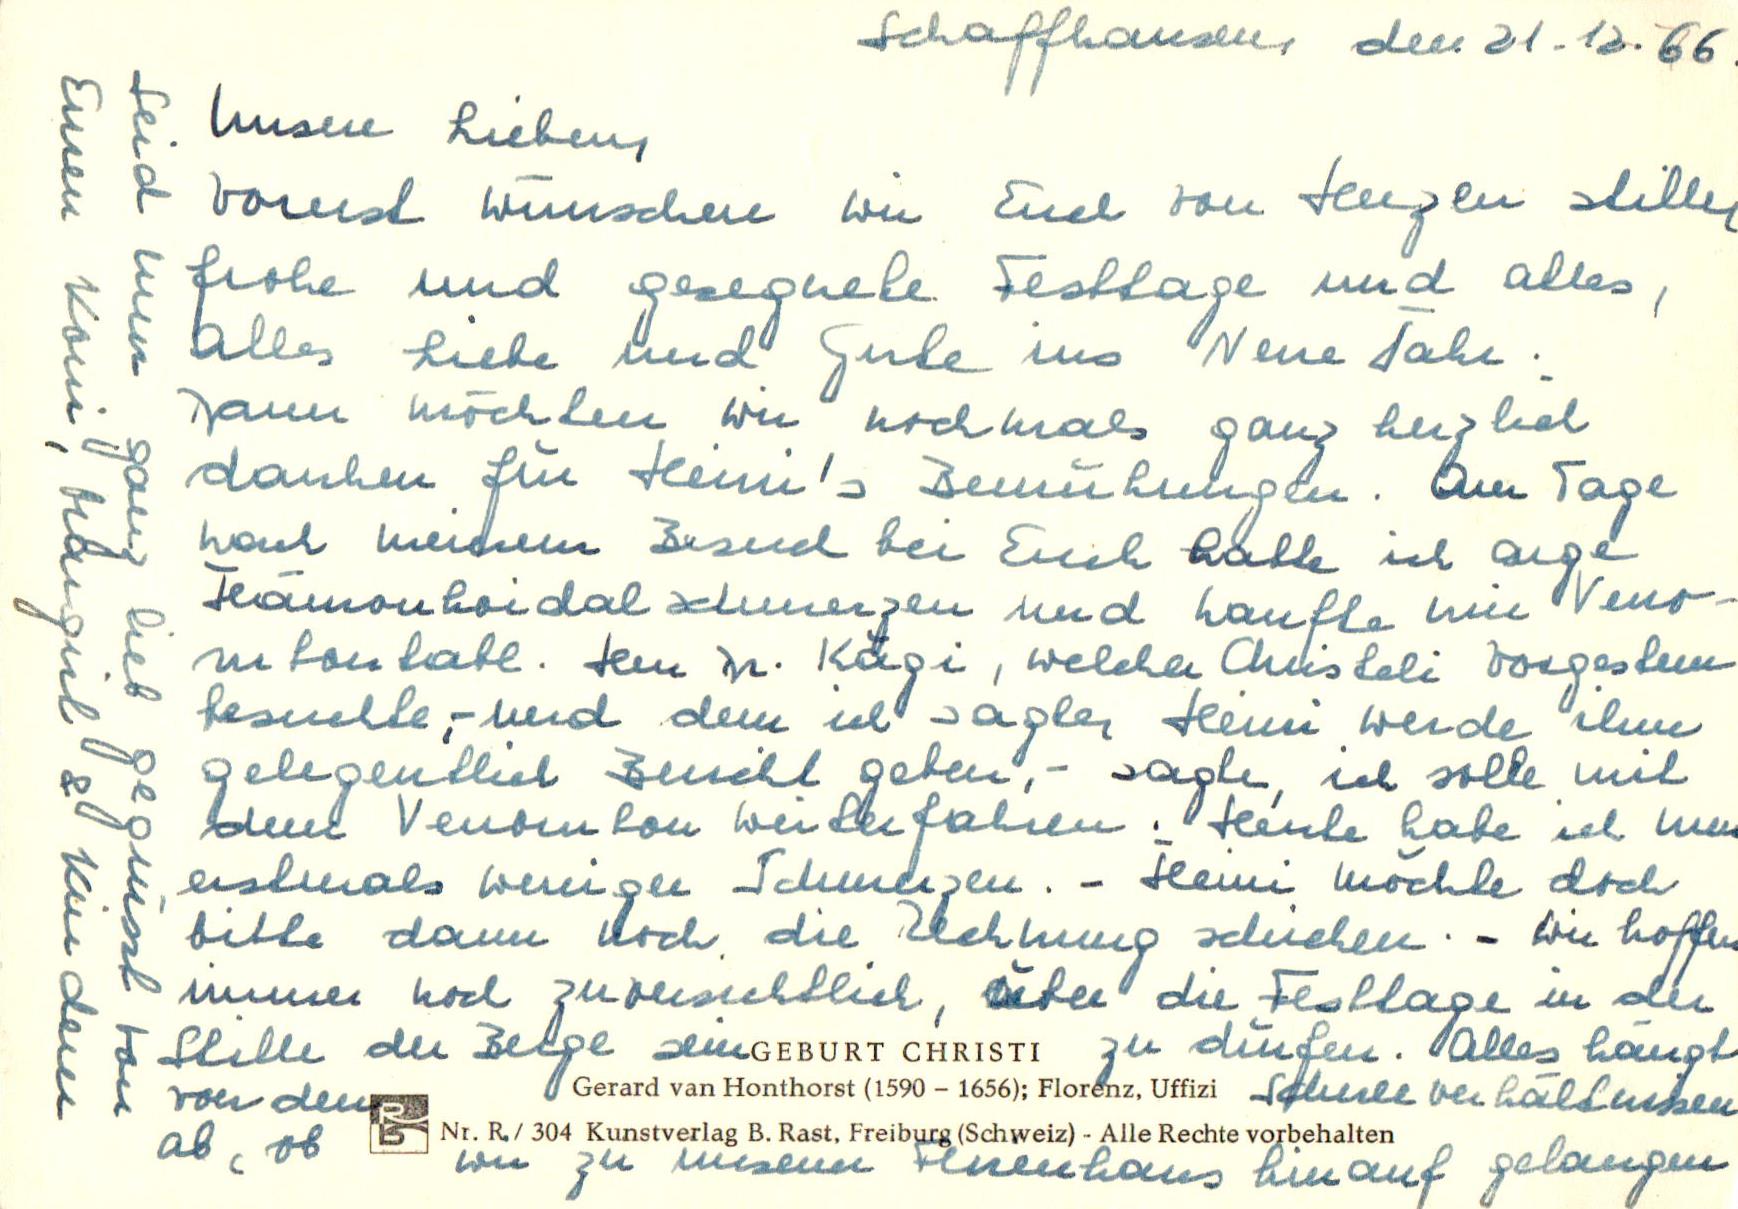 Schaffhausen, den 21.12.66.
Unsere Lieben,
Vorerst wünschen wir Euch von Herzen stille,
frohe und gesegnete Festtage und alles,
alles Liebe und Gute ins Neue Jahr.
Dann möchten wir nochmals ganz herzlich
danken für Heini's Bemühungen. Am Tage
nach meinem Besuch bei Euch hatte ich arge
Hämorrhoidalschmerzen und kaufte mir Veno-
Herr Dr. Kägi, welcher Christeli vorgestern
besuchte,- und dem ich sagte, Heini werde ihm
gelegentlich Bericht geben,- sagte, ich solle mit
dem weiterfahren. Heute habe ich nun
erstmals weniger Schmerzen. - Heini möchte doch
bitte dann noch die Rechnung schicken. - Wir hoffen
immer noch zuversichtlich, über die Festtage in der
Stille der Berge sein zu dürfen. Alles hängt
von den Schneeverhältnissen
ab, ob wir zu unserem Ferienhaus hinauf gelangen
GEBURT CHRISTI
Gerard van Honthorst (1590 – 1656); Florenz, Uffizi
Nr. R / 304 Kunstverlag B. Rast, Freiburg (Schweiz) - Alle Rechte vorbehalten
Seid nun ganz lieb gegrüsst von
Euren &amp; Kindern